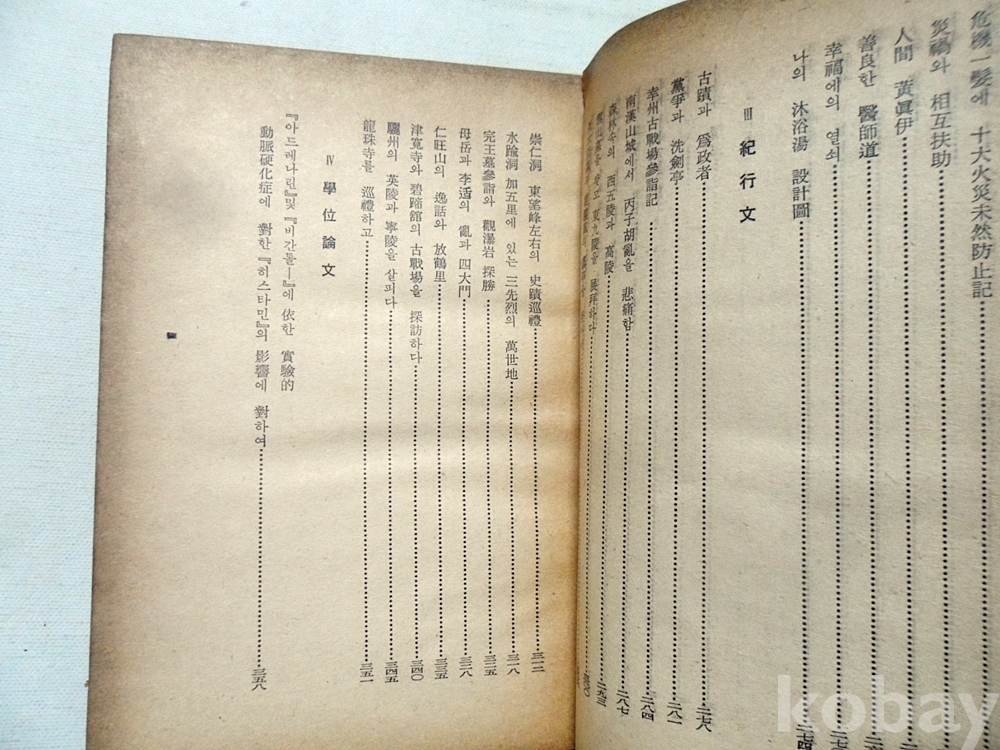 危機一髮에 十大火災未然防止記
災禍와 相互扶助
人間 黃眞伊
善良한 醫師道
幸福에의 열쇠
나의 沐浴湯 設計圖
Ⅲ 紀行文
古蹟과 爲政者 二七八
黨爭과 洗劍亭 二八一
幸州古戰場參詣記 二八四
南漢山城에서 丙子胡亂을 悲痛함 二八七
森林속의 西五陵과 高陵 二九三
東九陵을 展拜하다
崇仁洞 東望峰左右의 史蹟巡禮 三一二
水踰洞 加五里에 있는 三先烈의 萬世地 三一八
完王墓參詣와 觀瀑岩 探勝 三二五
母岳과 李适의 亂과 四大門 三二八
仁旺山의 逸話와 放鶴里 三三五
津寬寺와 碧蹄館의 古戰場을 探訪하다 三四〇
驪州의 英陵과 寧陵을 살피다 三四五
龍珠寺를 巡禮하고 三五一
Ⅳ 學位論文
『아드레나린』및『비간톨ー』에 依한 實驗的
動脈硬化症에 對한『히스타민』의 影響에 對하여 三五八
kobay